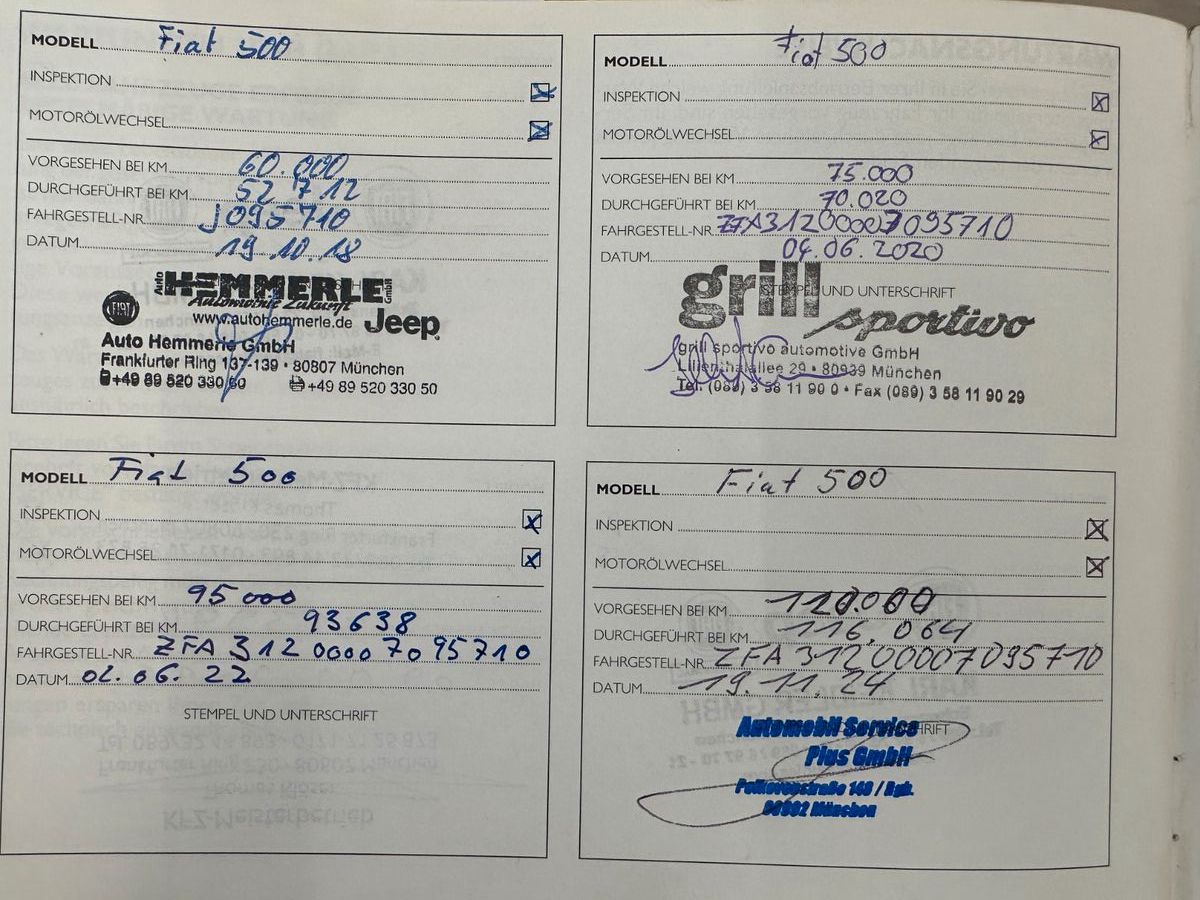 MODELL Fiat 500
INSPEKTION
MOTORÖLWECHSEL
VORGESEHEN BEI KM 60.000
DURCHGEFÜHRT BEI KM 52 712
FAHRGESTELL-NR. J095710
DATUM 19.10.18
Auto HEMMERLE GmbH
Automobile Zukunft
FIAT
www.autohemmerle.de Jeep
Auto Hemmerle GmbH
Frankfurter Ring 137-139 • 80807 München
+49 89 520 330 60 +49 89 520 330 50
MODELL Fiat 500
INSPEKTION
MOTORÖLWECHSEL
VORGESEHEN BEI KM 75.000
DURCHGEFÜHRT BEI KM 70.020
FAHRGESTELL-NR. ZFA31200007095710
DATUM 04.06.2020
STEMPEL UND UNTERSCHRIFT
grill
sportivo
grill sportivo automotive GmbH
Lilienthalallee 29 • 80939 München
Tel. (089) 3 58 11 90 0 • Fax (089) 3 58 11 90 29
MODELL Fiat 500
INSPEKTION
MOTORÖLWECHSEL
VORGESEHEN BEI KM 95 000
DURCHGEFÜHRT BEI KM 93638
FAHRGESTELL-NR. ZFA 312 0000 7095710
DATUM 02.06.22
STEMPEL UND UNTERSCHRIFT
MODELL Fiat 500
INSPEKTION
MOTORÖLWECHSEL
VORGESEHEN BEI KM 120.000
DURCHGEFÜHRT BEI KM 116.064
FAHRGESTELL-NR. ZFA 31200007095710
DATUM 19.11.24
Automobil Service
Plus GmbH
München